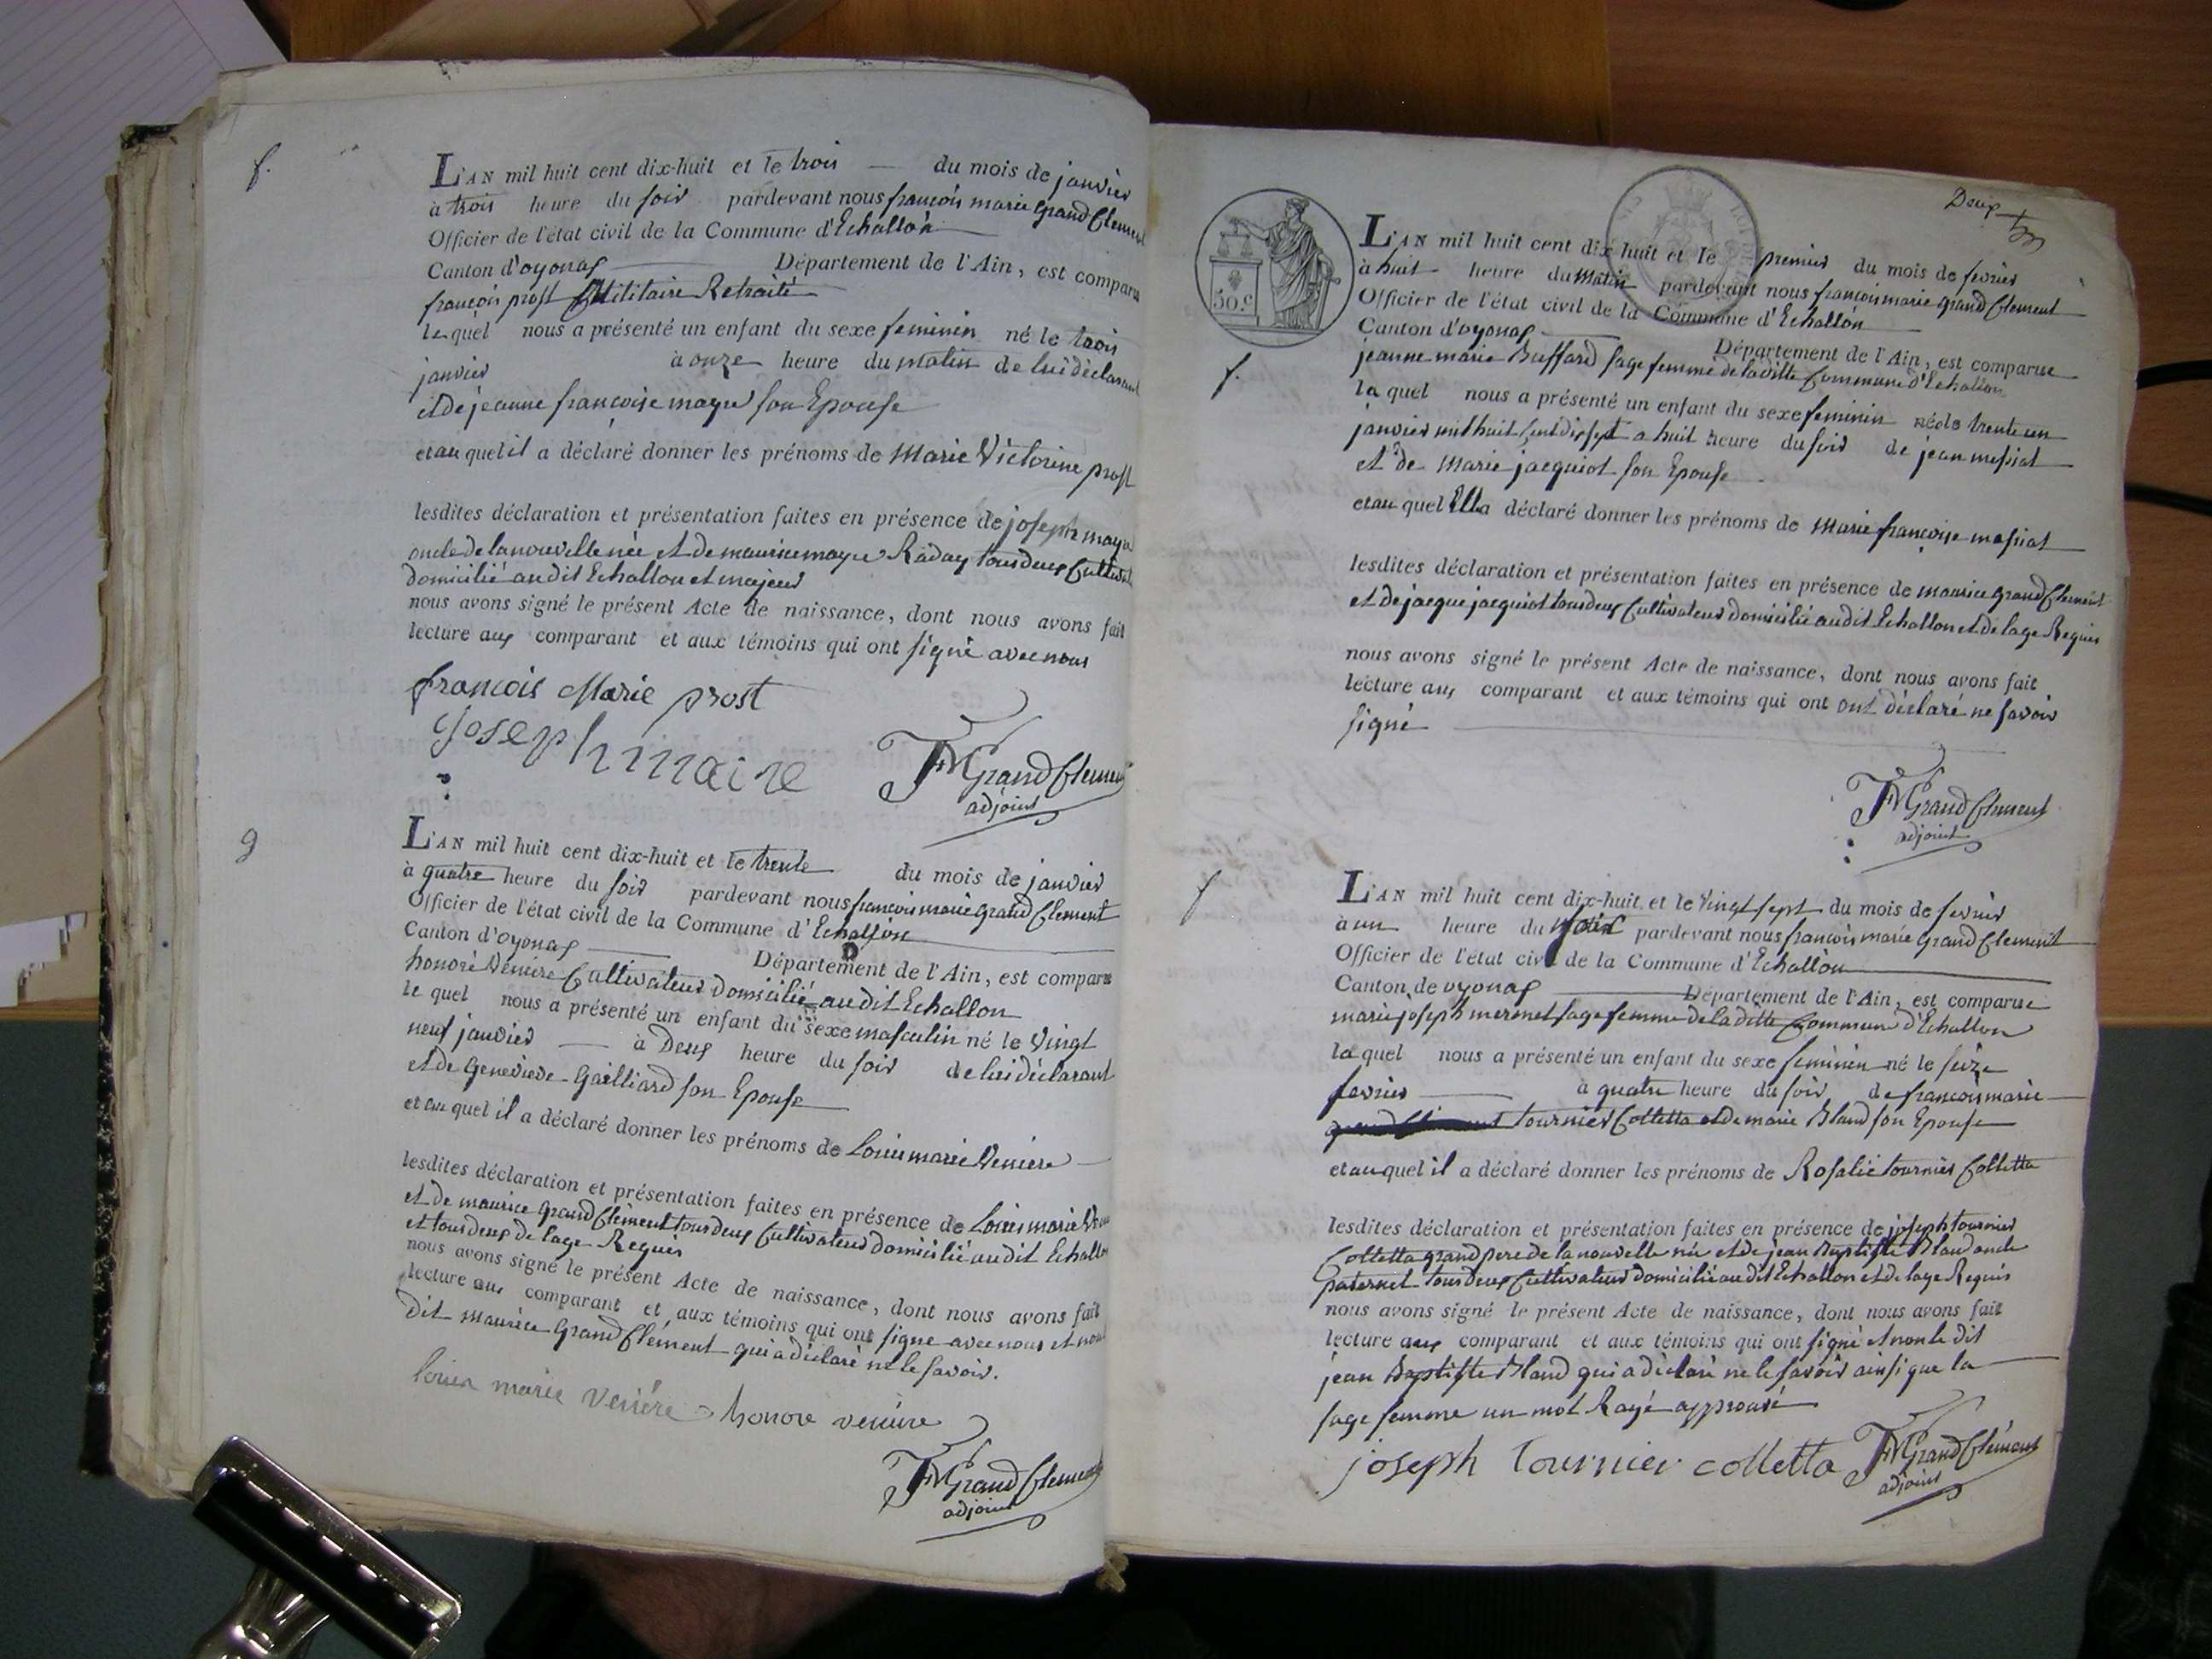 f.
L'AN mil huit cent dix-huit et le trois du mois de janvier
à trois heure du soir pardevant nous françois marie Grand Clement
Officier de l'état civil de la Commune d'Echallon
Canton d'oyonax Département de l'Ain, est comparu
françois prost Militaire Retraité
lequel nous a présenté un enfant du sexe feminin né le trois
janvier à onze heure du matin de lui déclarant
et de jeanne françoise mayre son Epouse
et au quel il a déclaré donner les prénoms de Marie Victorine prost
lesdites déclaration et présentation faites en présence de joseph mayre
oncle de la nouvelle née et de maurice mayre Raday tous deux Cultivat
domicilié au dit Echallon et majeur
nous avons signé le présent Acte de naissance, dont nous avons fait
lecture aux comparant et aux témoins qui ont signé avec nous
francois Marie prost
Joseph maire
FM Grand Clement
adjoint
g
L'AN mil huit cent dix-huit et le trente du mois de janvier
à quatre heure du soir pardevant nous françois marie Grand Clement
Officier de l'état civil de la Commune d'Echallon
Canton d'oyonax Département de l'Ain, est comparu
honoré Veniére Cultivateur Domicilié au dit Echallon
le quel nous a présenté un enfant du sexe masculin né le vingt
neuf janvier à Deux heure du soir de lui déclarant
et de Genevieve Gailliard son Epouse
et au quel il a déclaré donner les prénoms de Louis marie Veniere
lesdites déclaration et présentation faites en présence de Louis marie
et de maurice Grand Clément tous deux Cultivateur domicilié au dit Echallon
et tous deux de l'age Requis
nous avons signé le présent Acte de naissance, dont nous avons fait
lecture aux comparant et aux témoins qui ont signe avec nous et non
dit maurice Grand Clément qui a déclaré ne le savoir.
louis marie veniére honore veniere
FM Grand Clement
adjoint
Deux
50.c
f.
L'AN mil huit cent dix-huit et le premier du mois de fevrier
à huit heure du matin pardevant nous françois marie Grand Clement
Officier de l'état civil de la Commune d'Echallon
Canton d'oyonax Département de l'Ain, est comparue
jeanne marie Buffard sage femme de la ditte Commune d'Echallon
la quel nous a présenté un enfant du sexe feminin né le trente un
janvier mil huit cent dix sept a huit heure du soir de jean messiat
et de Marie jacquiot son Epouse
et au quel Ella déclaré donner les prénoms de Marie françoise messiat
lesdites déclaration et présentation faites en présence de maurice Grand Clement
et de jacque jacquiot tous deux Cultivateur domicilié au dit Echallon et de l'age Requis
nous avons signé le présent Acte de naissance, dont nous avons fait
lecture aux comparant et aux témoins qui ont ont déclaré ne savoir
signé
FM Grand Clement
adjoint
f
L'AN mil huit cent dix-huit et le vingt sept du mois de fevrier
à un heure du soir pardevant nous françois marie Grand Clement
Officier de l'état civil de la Commune d'Echallon
Canton de oyonax Département de l'Ain, est comparue
marie joseph mermet sage femme de la ditte Commune d'Echallon
la quel nous a présenté un enfant du sexe feminin né le seize
fevrier à quatre heure du soir de françois marie
tournier Colletta et de marie Bland son Epouse
et au quel il a déclaré donner les prénoms de Rosalie tournier Colletta
lesdites déclaration et présentation faites en présence de joseph tournier
Colletta grand pere de la nouvelle née et de jean Baptiste Bland oncle
paternel tous deux Cultivateur domicilié au dit Echallon et de l'age Requis
nous avons signé le présent Acte de naissance, dont nous avons fait
lecture aux comparant et aux témoins qui ont signé et non le dit
jean Baptiste Bland qui a déclaré ne le savoir ainsi que la
sage femme un mot Rayé approuvé
joseph tournier colletta FM Grand Clement
adjoint